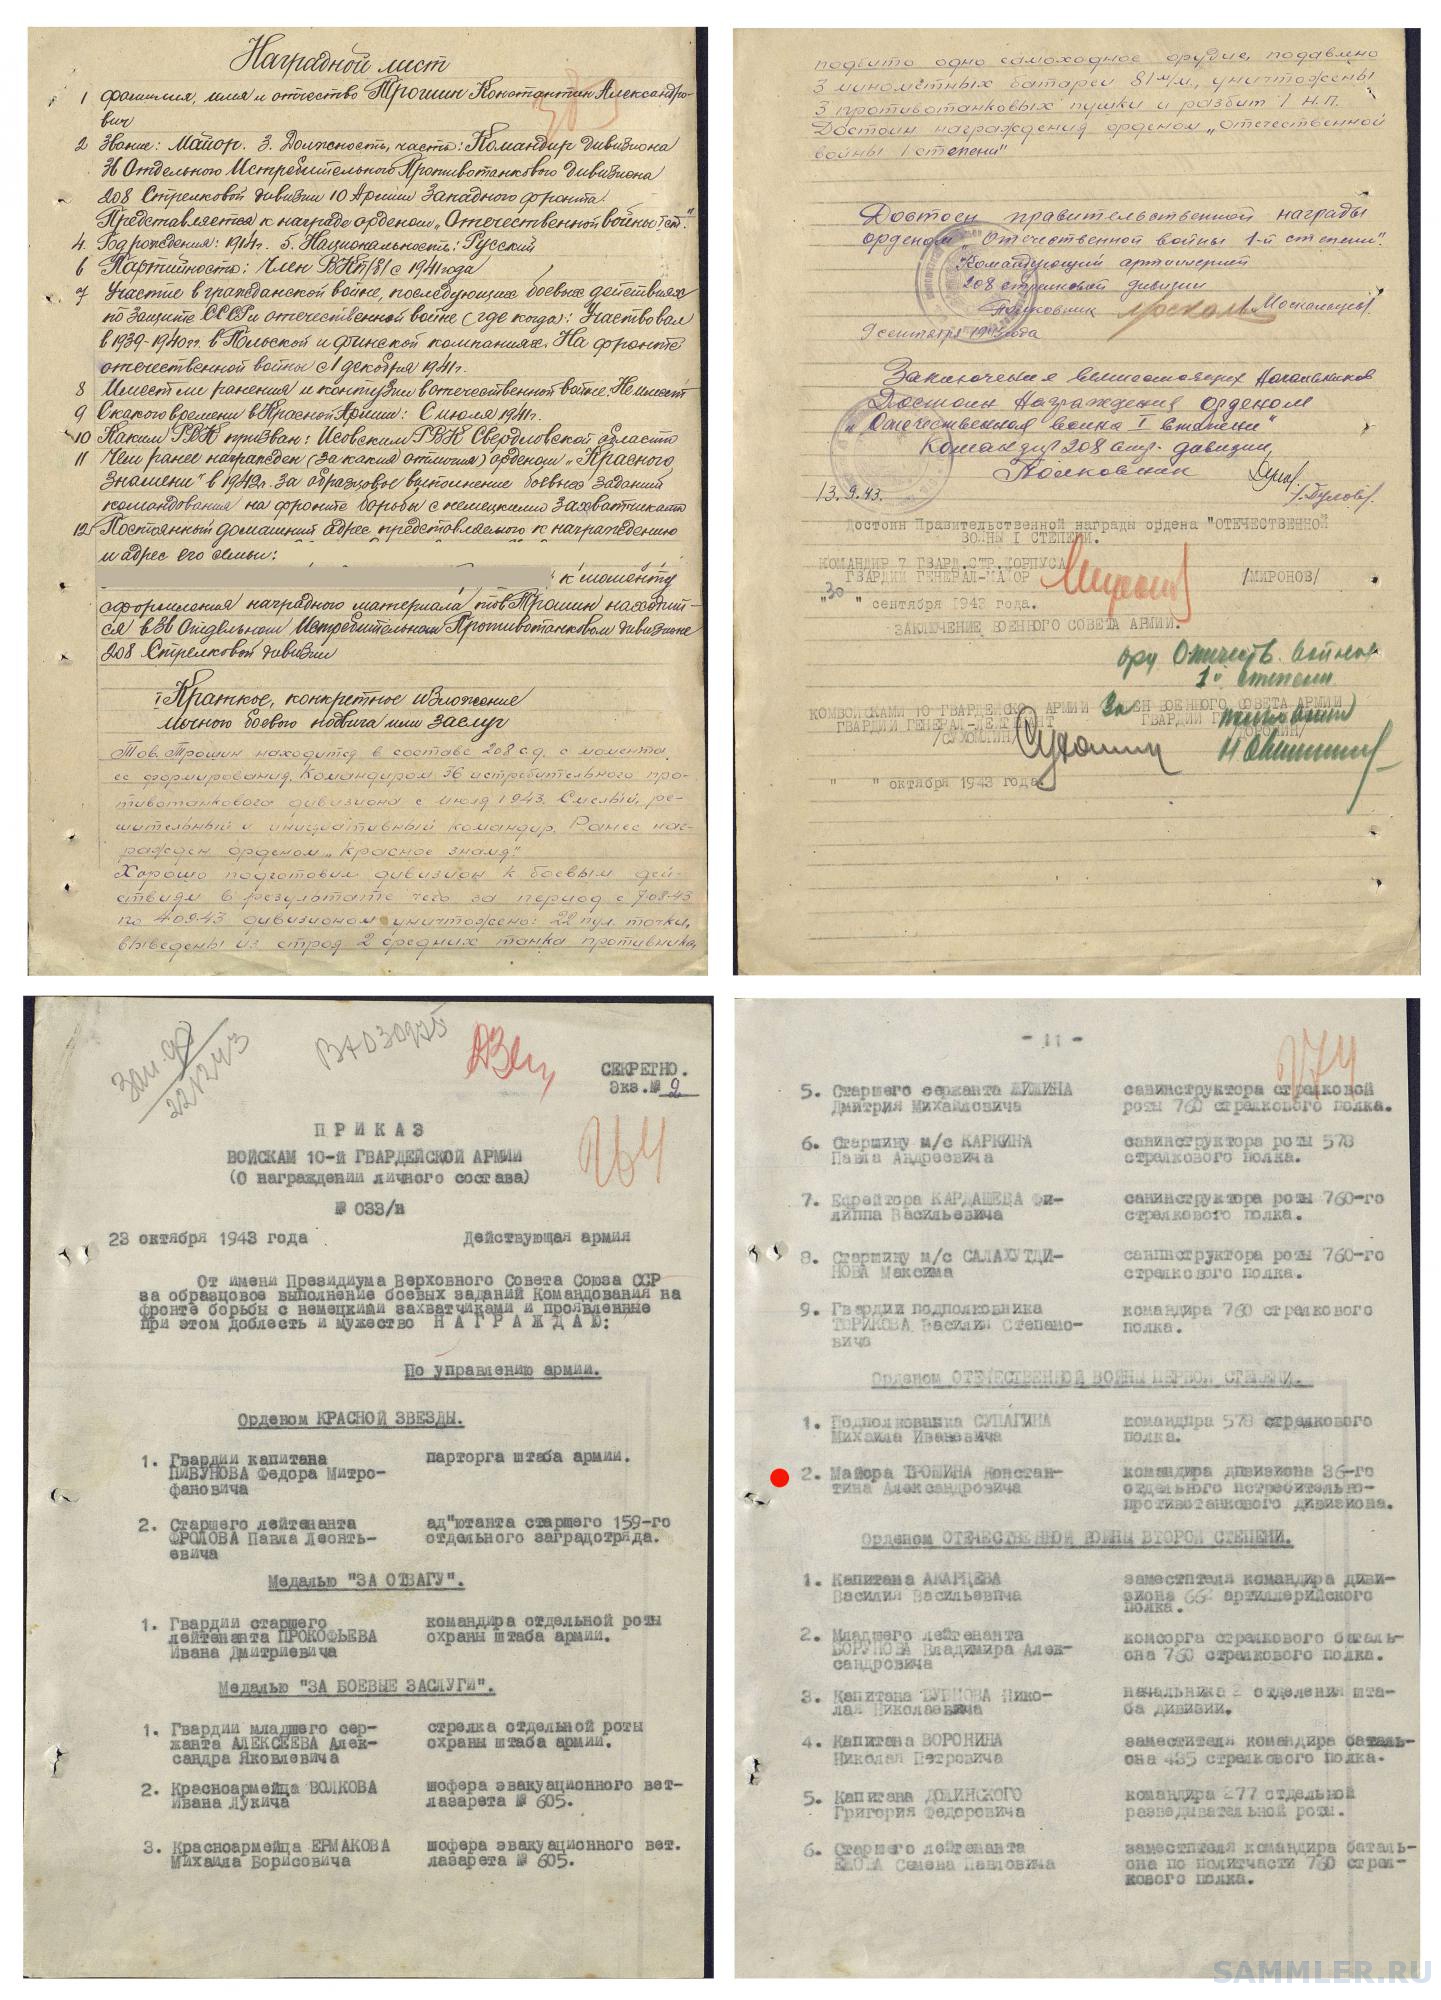 Наградной лист
1 фамилия, имя и отчество Трошин Константин Александро-
вич
2 Звание: Майор. 3. Должность, часть: Командир дивизиона
36 Отдельного Истребительного Противотанкового дивизиона
208 Стрелковой дивизии 10 Армии Западного фронта.
Представляется к награде орденом „Отечественной войны I ст."
4. Год рождения: 1914 г. 5. Национальность: Русский
6 Партийность: Член ВКП/б/ с 1941 года
7 Участие в гражданской войне, последующих боевых действиях
по защите СССР и отечественной войне (где когда): Участвовал
в 1939-1940 гг. в Польской и финской компаниях. На фронте
отечественной войны с 1 декабря 1941 г.
8 Имеет ли ранения и контузии в отечественной войне. Не имеет
9 С какого времени в Красной Армии: С июля 1941 г.
10 Каким РВК призван: Исовским РВК Свердловской области
11 Чем ранее награжден (за какие отличия) орденом „Красного
Знамени" в 1942 г. За образцовое выполнение боевых заданий
командования на фронте борьбы с немецкими захватчиками
12 Постоянный домашний адрес представляемого к награждению
и адрес его семьи:
к моменту
оформления наградного материала тов Трошин находит-
ся в 36 Отдельном Истребительном Противотанковом дивизионе
208 Стрелковой дивизии
I Краткое, конкретное изложение
личного боевого подвига или заслуг
Тов. Трошин находится в составе 208 с.д. с момента
ее формирования. Командиром 36 истребительного про-
тивотанкового дивизиона с июля 1943. Смелый, ре-
шительный и инициативный командир. Ранее наг-
ражден орденом „Красное знамя".
Хорошо подготовил дивизион к боевым дей-
ствиям в результате чего за период с 7.08.43
по 4.09.43 дивизионом уничтожено: 22 пул. точки,
выведены из строя 2 средних танка противника,
подбито одно самоходное орудие, подавлено
3 минометных батареи 81 м/м., уничтожены
3 противотанковых пушки и разбит 1 Н.П.
Достоин награждения орденом „Отечественной
войны I степени"
Достоен правительственной награды
орденом „Отечественной войны 1-й степени".
Командующий артиллерией
208 стрелковой дивизии
Полковник Москальцов.
9 сентября 1943 года
Заключения вышестоящих начальников
Достоин награждения орденом
„Отечественная война I степени"
Командир 208 стр. дивизии
Полковник
13.9.43.
Достоин Правительственной награды ордена "ОТЕЧЕСТВЕННОЙ
ВОЙНЫ I СТЕПЕНИ.
КОМАНДИР 7 ГВАРД.СТР.КОРПУСА
ГВАРДИИ ГЕНЕРАЛ-МАЙОР /МИРОНОВ/
"30" сентября 1943 года.
ЗАКЛЮЧЕНИЕ ВОЕННОГО СОВЕТА АРМИИ.
орд. Отечеств. войны
1й степени
КОМВОЙСКАМИ 10 ГВАРДЕЙСКОЙ АРМИИ ЧЛЕН ВОЕННОГО СОВЕТА АРМИИ
ГВАРДИИ ГЕНЕРАЛ-ЛЕЙТЕНАНТ
/СУХОМЛИН/
" " октября 1943 года.
СЕКРЕТНО.
Экз.№ 2
264
ПРИКАЗ
ВОЙСКАМ 10-й ГВАРДЕЙСКОЙ АРМИИ
(О награждении личного состава)
№ 033/н
23 октября 1943 года Действующая армия
От имени Президиума Верховного Совета Союза ССР
за образцовое выполнение боевых заданий Командования на
фронте борьбы с немецкими захватчиками и проявленные
при этом доблесть и мужество НАГРАЖДАЮ:
По управлению армии.
Орденом КРАСНОЙ ЗВЕЗДЫ.
1. Гвардии капитана парторга штаба армии.
ПИВУНОВА Федора Митро-
фановича
2. Старшего лейтенанта ад"ютанта старшего 159-го
ФРОЛОВА Павла Леонть- отдельного заградотряда.
евича
Медалью "ЗА ОТВАГУ".
1. Гвардии старшего командира отдельной роты
лейтенанта ПРОКОФЬЕВА охраны штаба армии.
Ивана Дмитриевича
Медалью "ЗА БОЕВЫЕ ЗАСЛУГИ".
1. Гвардии младшего сер- стрелка отдельной роты
жанта АЛЕКСЕЕВА Алек- охраны штаба армии.
сандра Яковлевича
2. Красноармейца ВОЛКОВА шофера эвакуационного вет-
Ивана Лукича лазарета № 605.
3. Красноармейца ЕРМАКОВА шофера эвакуационного вет.
Михаила Борисовича лазарета № 605.
- 11 -
274
5. Старшего сержанта санинструктора стрелковой
Дмитрия Михайловича роты 760 стрелкового полка.
6. Старшину м/с КАРКИНА санинструктора роты 578
Павла Андреевича стрелкового полка.
7. Ефрейтора КАРДАШЕВА Фи- санинструктора роты 760-го
липпа Васильевича стрелкового полка.
8. Старшину м/с САЛАХУТДИ- санинструктора роты 760-го
НОВА Максима стрелкового полка.
9. Гвардии подполковника командира 760 стрелкового
ТОРИКОВА Василия Степано- полка.
вича
Орденом ОТЕЧЕСТВЕННОЙ ВОЙНЫ ПЕРВОЙ СТЕПЕНИ.
1. Подполковника СУПАГИНА командира 578 стрелкового
Михаила Ивановича полка.
2. Майора ТРОШИНА Констан- командира дивизиона 36-го
тина Александровича отдельного истребительно-
противотанкового дивизиона.
Орденом ОТЕЧЕСТВЕННОЙ ВОЙНЫ ВТОРОЙ СТЕПЕНИ.
1. Капитана АКАРЦЕВА заместителя командира диви-
Василия Васильевича зиона 662 артиллерийского
полка.
2. Младшего лейтенанта комсорга стрелкового баталь-
БОРУНОВА Владимира Алек- она 760 стрелкового полка.
сандровича
3. Капитана БУБНОВА Нико- начальника 2 отделения шта-
лая Николаевича ба дивизии.
4. Капитана ВОРОНИНА заместителя командира баталь-
Николая Петровича она 435 стрелкового полка.
5. Капитана ДОЛИНСКОГО командира 277 отдельной
Григория Федоровича разведывательной роты.
6. Старшего лейтенанта заместителя командира баталь-
ЕЖОВА Семена Павловича она по политчасти 760 стрел-
кового полка.
SAMMLER.RU